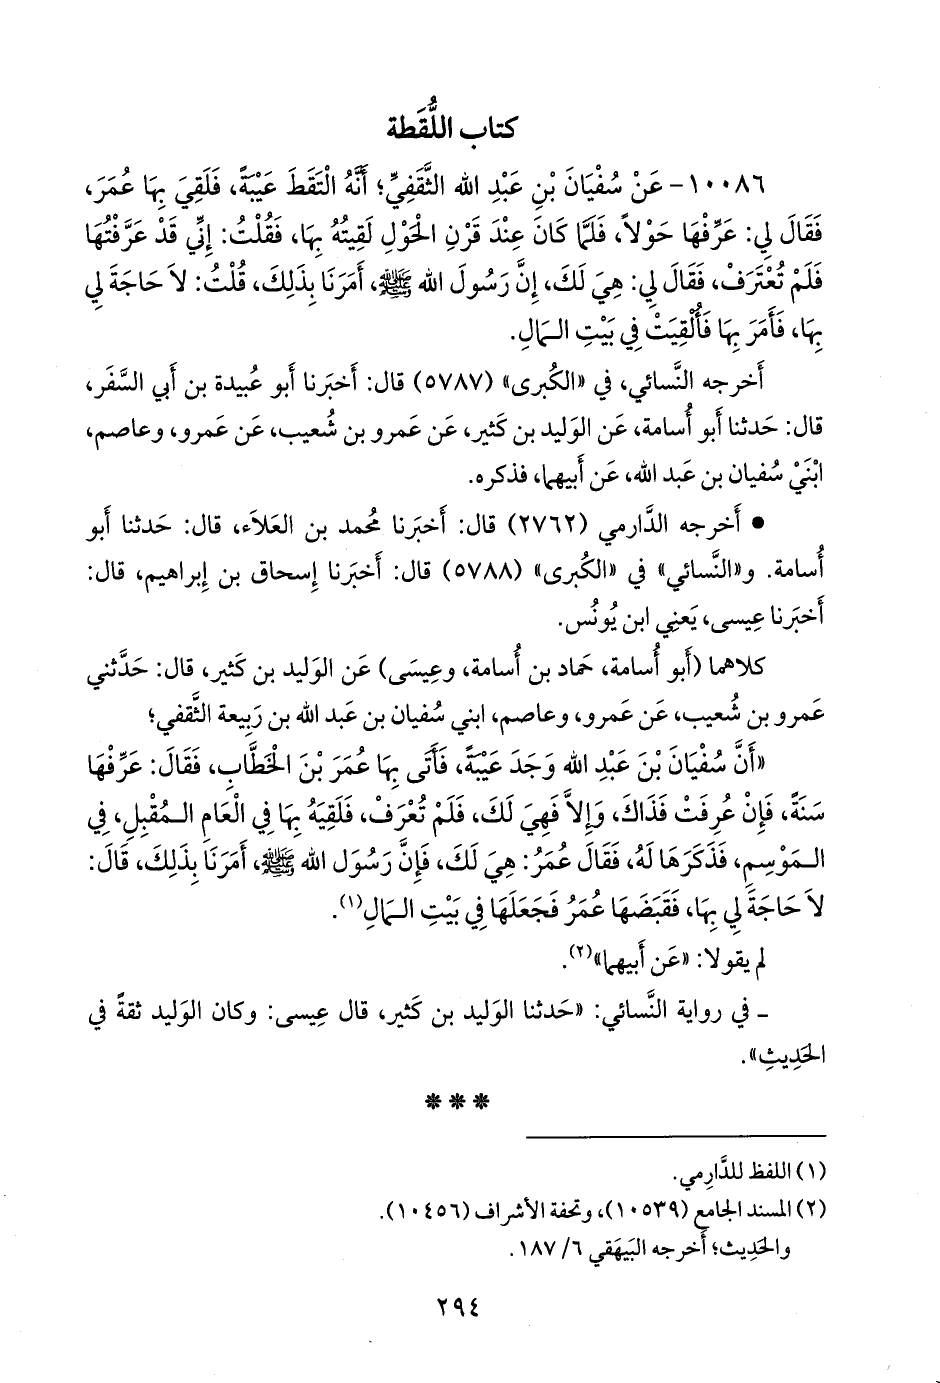 كتاب اللُّقَطة
١٠٠٨٦- عَنْ سُفْيَانَ بْنِ عَبْدِ الله الثَّقَفِيِّ؛ أَنَّهُ الْتَقَطَ عَيْبَةً، فَلَقِيَ بِهَا عُمَرَ،
فَقَالَ لِي: عَرِّفْهَا حَوْلاً، فَلَمَّا كَانَ عِنْدَ قَرْنِ الْحَوْلِ لَقِيتُهُ بِهَا، فَقُلْتُ: إِنِّي قَدْ عَرَّفْتُهَا
فَلَمْ تُعْتَرَفْ، فَقَالَ لِي: هِيَ لَكَ، إِنَّ رَسُولَ الله ﷺ، أَمَرَنَا بِذَلِكَ، قُلْتُ: لاَ حَاجَةَ لِي
بِهَا، فَأَمَرَ بِهَا فَأُلْقِيَتْ فِي بَيْتِ الـمَالِ.
أَخرجه النَّسائي، في «الكُبرى» (٥٧٨٧) قال: أَخبَرنا أَبو عُبيدة بن أَبي السَّفَر،
قال: حَدثنا أَبو أُسامة، عَن الوَليد بن كَثير، عَن عَمرو بن شُعيب، عَن عَمرو، وعاصم،
ابْنَيْ سُفيان بن عَبد الله، عَن أَبيهما، فذكره.
• أَخرجه الدَّارمي (٢٧٦٢) قال: أَخبَرنا مُحمد بن العَلاَء، قال: حَدثنا أَبو
أُسامة. و«النَّسائي» في «الكُبرى» (٥٧٨٨) قال: أَخبَرنا إِسحاق بن إِبراهيم، قال:
أَخبَرنا عِيسى، يَعنِي ابن يُونُس.
كلاهما (أَبو أُسامة، حَماد بن أُسامة، وعِيسَى) عَن الوَليد بن كَثير، قال: حَدَّثني
عَمرو بن شُعيب، عَن عَمرو، وعاصم، ابني سُفيان بن عَبد الله بن رَبيعة الثَّقفي؛
«أَنَّ سُفْيَانَ بْنَ عَبْدِ الله وَجَدَ عَيْبَةً، فَأَتَى بِهَا عُمَرَ بْنَ الْخَطَّابِ، فَقَالَ: عَرِّفْهَا
سَنَةً، فَإِنْ عُرِفَتْ فَذَاكَ، وَإِلاَّ فَهِيَ لَكَ، فَلَمْ تُعْرَفْ، فَلَقِيَهُ بِهَا فِي الْعَامِ الـمُقْبِلِ، فِي
الـمَوْسِمِ، فَذَكَرَهَا لَهُ، فَقَالَ عُمَرُ: هِيَ لَكَ، فَإِنَّ رَسُوَل الله ﷺ، أَمَرَنَا بِذَلِكَ، قَالَ:
لاَ حَاجَةَ لِي بِهَا، فَقَبَضَهَا عُمَرُ فَجَعَلَهَا فِي بَيْتِ الـمَالِ(١).
لم يقولا: «عَن أَبيهما»(٢).
ـ في رواية النَّسائي: «حَدثنا الوَليد بن كَثير، قال عِيسى: وكان الوَليد ثقةً في
الحَدِيثِ».
* * *
(١) اللفظ للدَّارِمي.
(٢) المسند الجامع (١٠٥٣٩)، وتحفة الأشراف (١٠٤٥٦).
والحَدِيث؛ أَخرجه البَيهَقي ٦/ ١٨٧.
٢٩٤